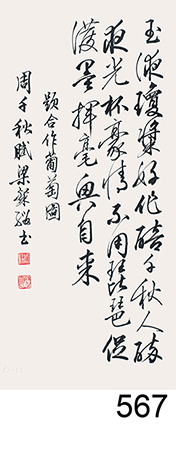 玉液瓊漿好作醅千秋人醉
夜光杯豪情不用琵琶促
潑墨揮毫興自來
題合作葡萄圖
周千秋賦梁粲纓書
567